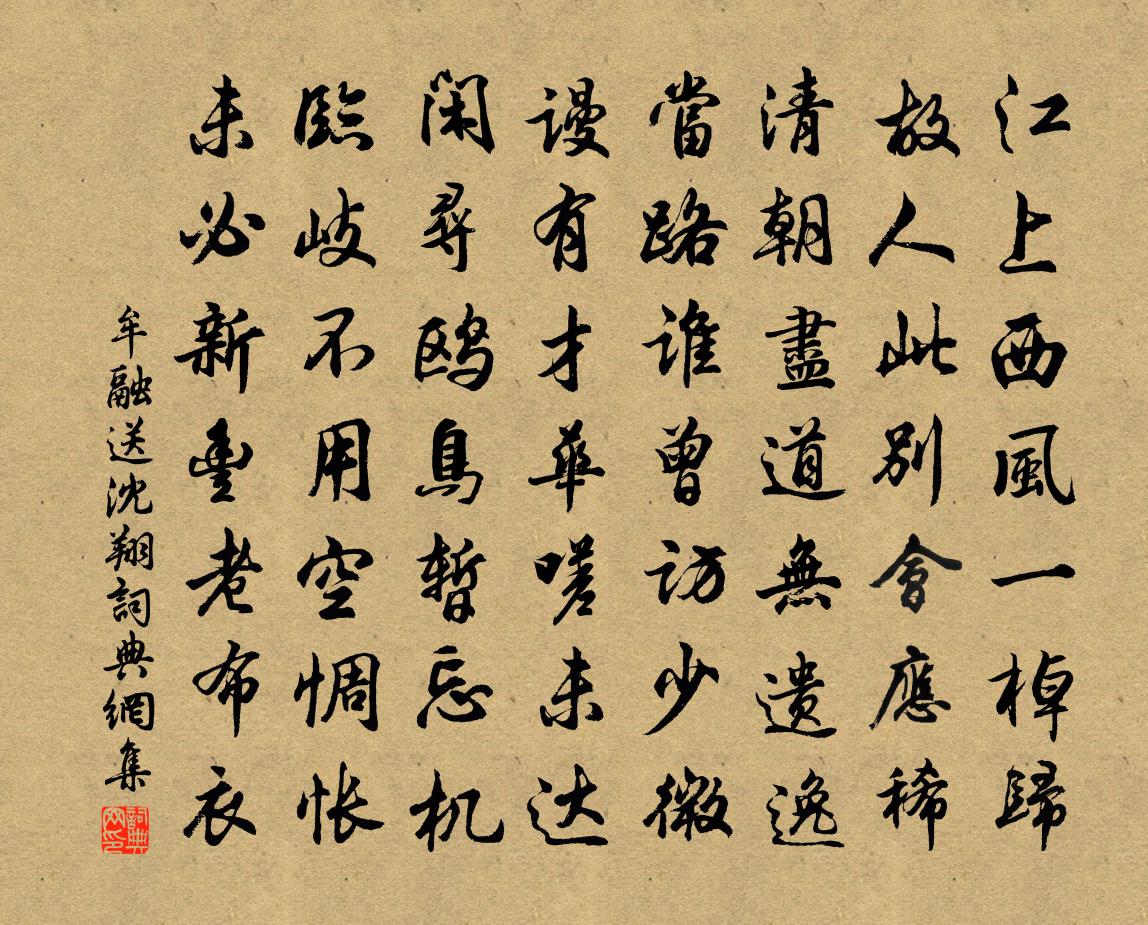 江上西風一棹歸
故人此別會應稀
清朝盡道無遺逸
當路誰曾訪少微
謾有才華嗟未达
閑尋鷗鳥暫忘机
臨岐不用空惆怅
未必新豐老布衣
牟融送沈翔詞典網集
詞典网印